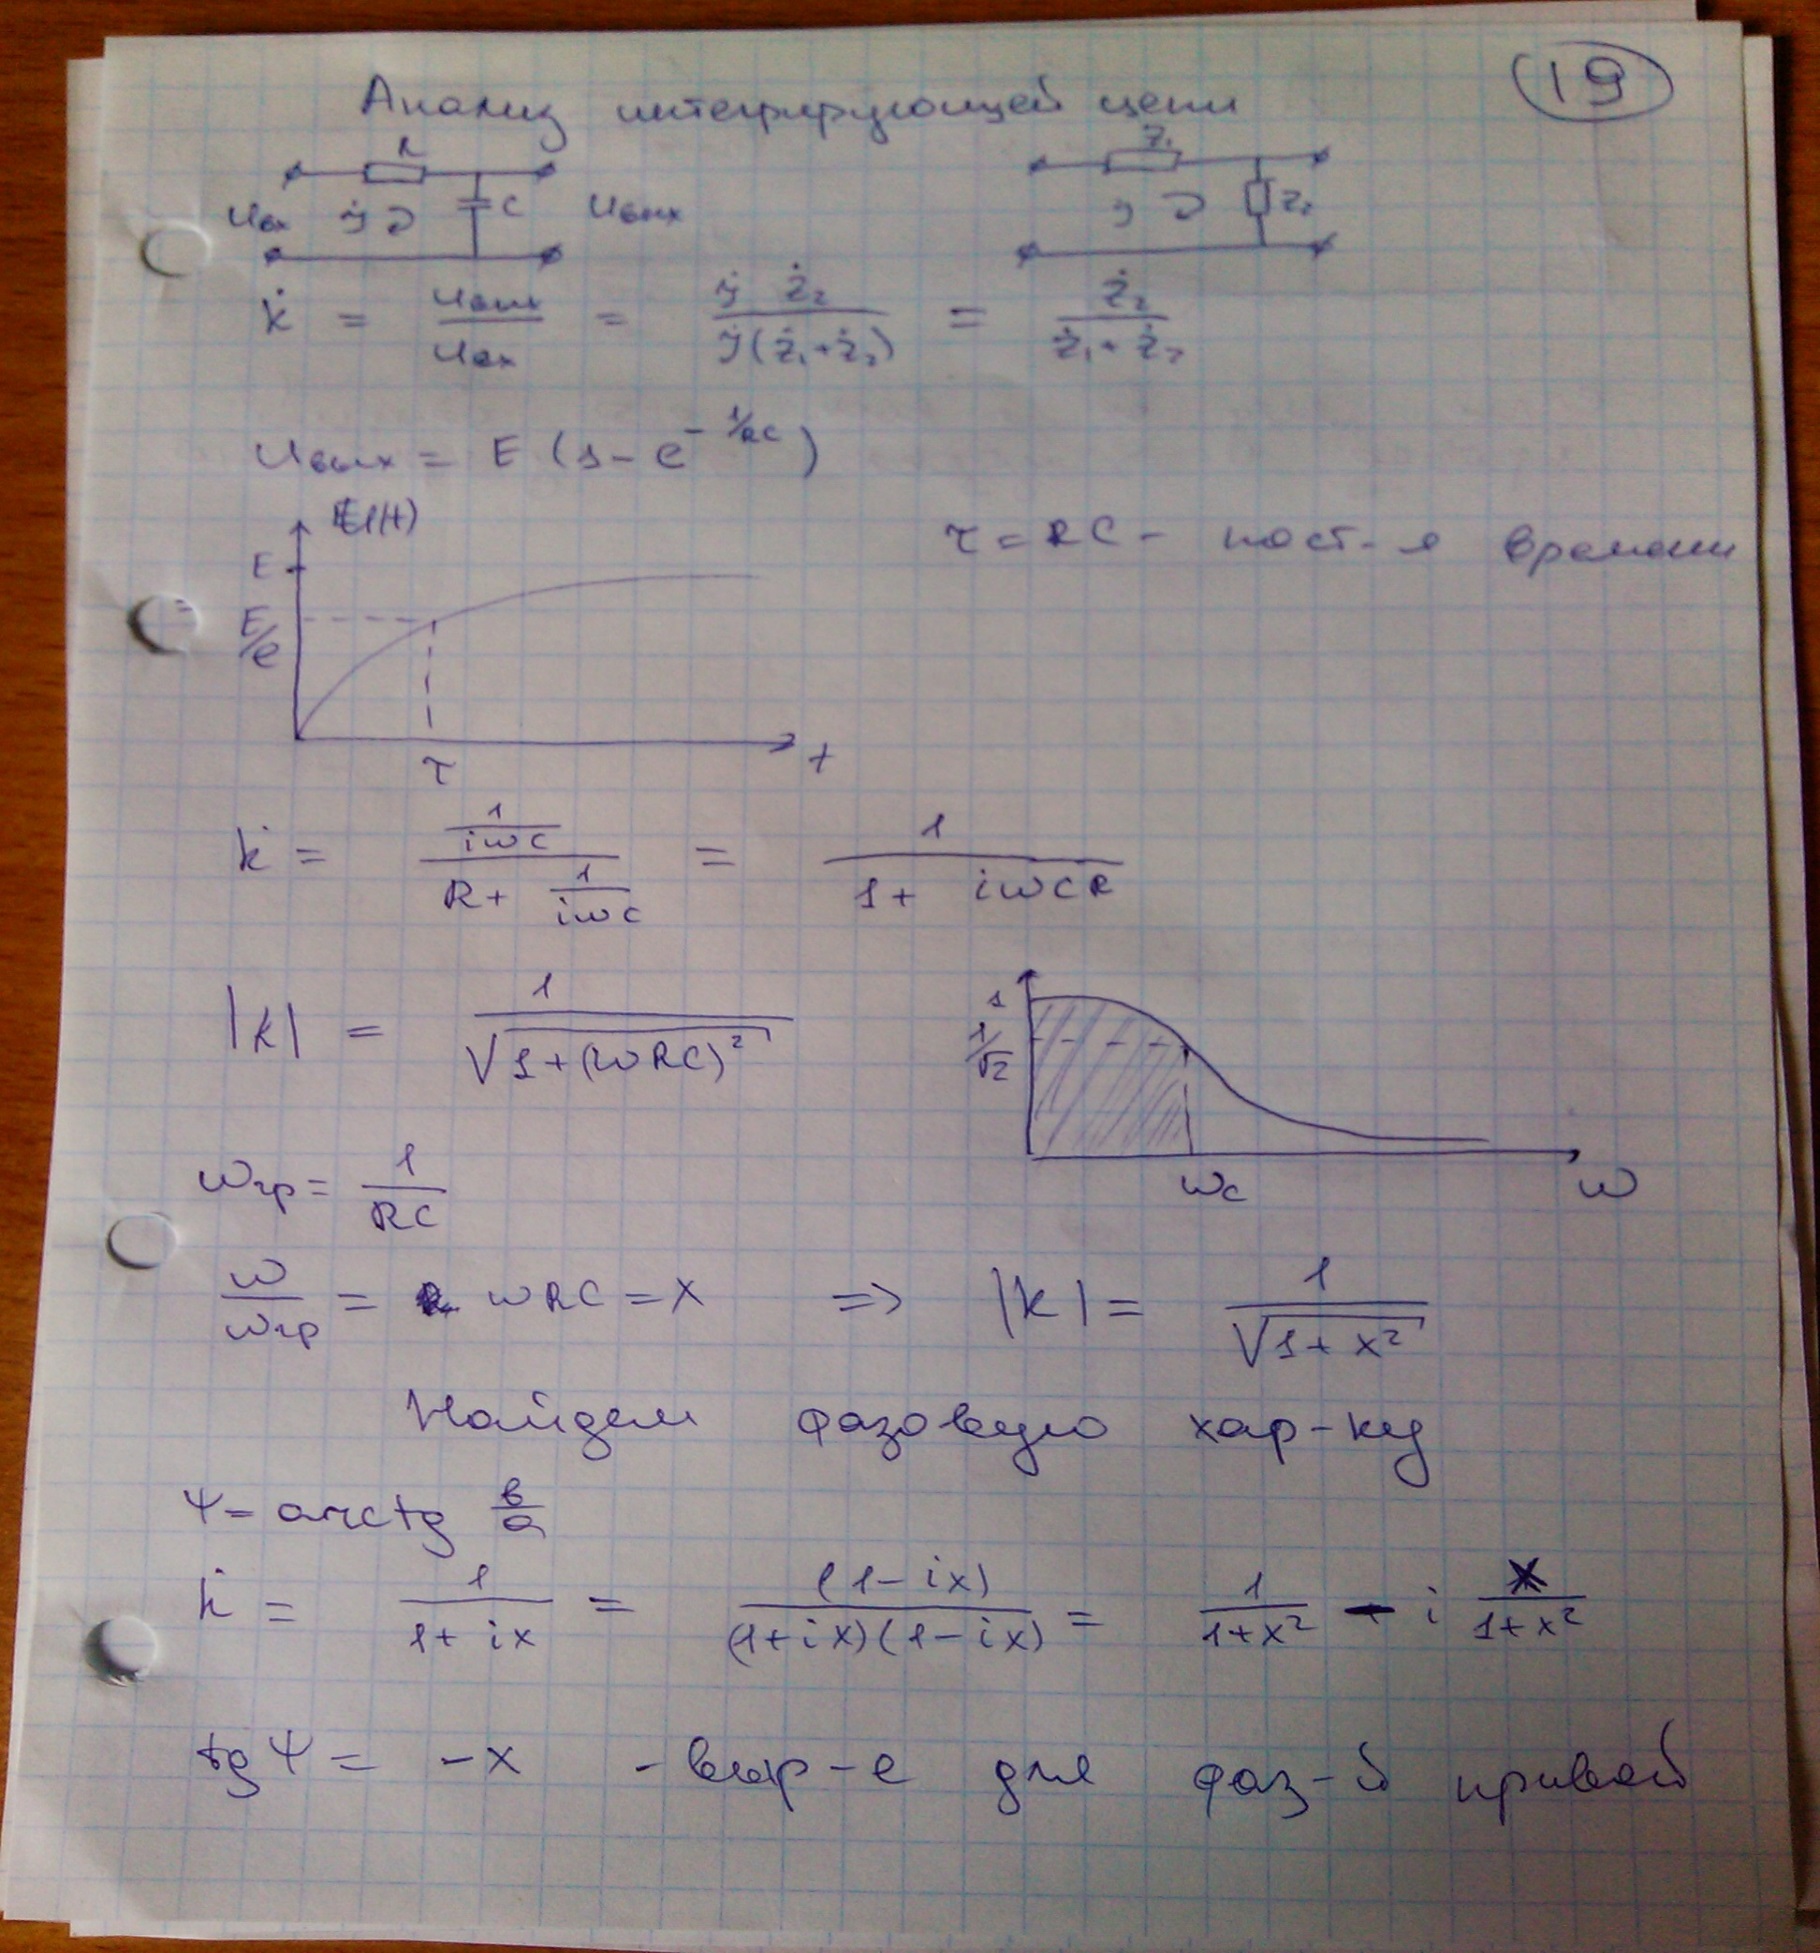 19
Анализ интегрирующей цепи
R
Z₁
Uвх j C Uвых
j Z₂
k̇ = Uвых/Uвх = j̇ Ż₂ / j̇(Ż₁+Ż₂) = Ż₂ / Ż₁+Ż₂
Uвых = E (1 - e^(-1/RC))
E
τ = RC - пост-я времени
E/e
τ
t
k̇ = (1/iωC) / (R + 1/iωC) = 1 / (1 + iωCR)
|k| = 1 / √(1+(ωRC)²)
1
1/√2
ωc
ω
ωгр = 1/RC
ω/ωгр = ωRC = x => |k| = 1 / √(1+x²)
Найдем фазовую хар-ку
Ψ = arctg в/a
k̇ = 1 / (1+ix) = (1-ix) / (1+ix)(1-ix) = 1/(1+x²) - i x/(1+x²)
tg Ψ = -x - выр-е для фаз-й кривой